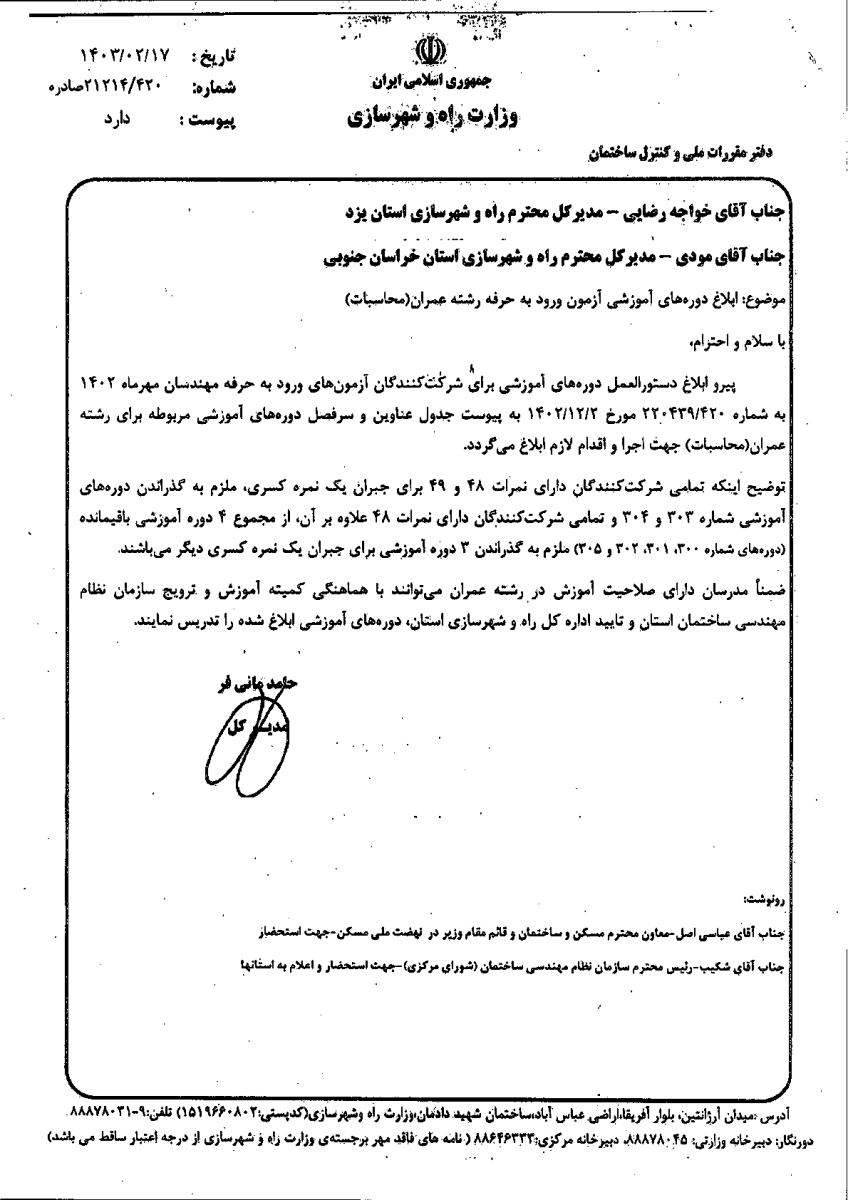 تاریخ : ۱۴۰۳/۰۲/۱۷
شماره: ۲۱۲۱۴/۴۲۰صادره
پیوست : دارد
جمهوری اسلامی ایران
وزارت راه و شهرسازی
دفتر مقررات ملی و کنترل ساختمان
جناب آقای خواجه رضایی – مدیرکل محترم راه و شهرسازی استان یزد
جناب آقای مودی – مدیرکل محترم راه و شهرسازی استان خراسان جنوبی
موضوع: ابلاغ دوره‌های آموزشی آزمون ورود به حرفه رشته عمران(محاسبات)
با سلام و احترام،
پیرو ابلاغ دستورالعمل دوره‌های آموزشی برای شرکت‌کنندگان آزمون‌های ورود به حرفه مهندسان مهرماه ۱۴۰۲
به شماره ۲۲۰۴۳۹/۴۲۰ مورخ ۱۴۰۲/۱۲/۲ به پیوست جدول عناوین و سرفصل دوره‌های آموزشی مربوطه برای رشته
عمران(محاسبات) جهت اجرا و اقدام لازم ابلاغ می‌گردد.
توضیح اینکه تمامی شرکت‌کنندگان دارای نمرات ۴۸ و ۴۹ برای جبران یک نمره کسری، ملزم به گذراندن دوره‌های
آموزشی شماره ۳۰۳ و ۳۰۴ و تمامی شرکت‌کنندگان دارای نمرات ۴۸ علاوه بر آن، از مجموع ۴ دوره آموزشی باقیمانده
(دوره‌های شماره ۳۰۰، ۳۰۱، ۳۰۲ و ۳۰۵) ملزم به گذراندن ۳ دوره آموزشی برای جبران یک نمره کسری دیگر می‌باشند.
ضمناً مدرسان دارای صلاحیت آموزش در رشته عمران می‌توانند با هماهنگی کمیته آموزش و ترویج سازمان نظام
مهندسی ساختمان استان و تایید اداره کل راه و شهرسازی استان، دوره‌های آموزشی ابلاغ شده را تدریس نمایند.
حامد مانی فر
مدیر کل
رونوشت:
جناب آقای عباسی اصل-معاون محترم مسکن و ساختمان و قائم مقام وزیر در نهضت ملی مسکن-جهت استحضار
جناب آقای شکیب-رئیس محترم سازمان نظام مهندسی ساختمان (شورای مرکزی)-جهت استحضار و اعلام به استانها
آدرس :میدان آرژانتین، بلوار آفریقا،اراضی عباس آباد،ساختمان شهید دادمان،وزارت راه وشهرسازی(کدپستی:۱۵۱۹۶۶۰۸۰۲) تلفن:۹-۸۸۸۷۸۰۳۱
دورنگار: دبیرخانه وزارتی: ۸۸۸۷۸۰۴۵، دبیرخانه مرکزی:۸۸۶۴۶۳۳۳ ( نامه های فاقد مهر برجسته‌ی وزارت راه و شهرسازی از درجه اعتبار ساقط می باشد)